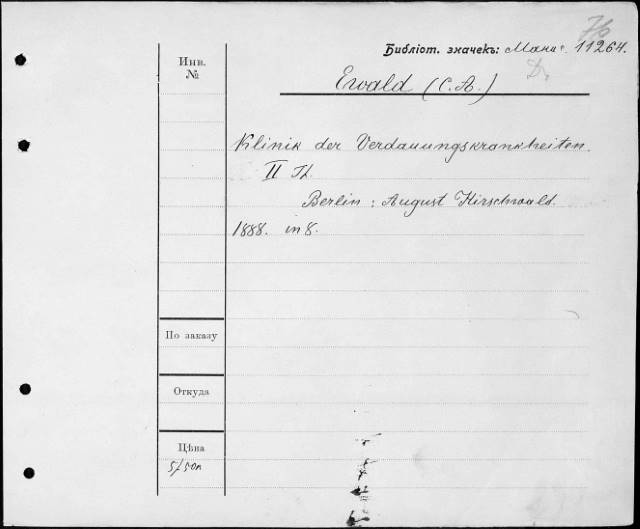 76
Библіот. значекъ: Мани. 11264.
D.
Инв.
№
Ewald (C. A.)
Klinik der Verdauungskrankheiten.
II Th.
Berlin: August Hirschwald.
1888. in 8.
По заказу
Откуда
Цѣна